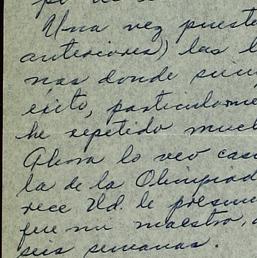 Una vez puest
anteriores) las l
nas donde
éxito, particularme
he repetido much
Ahora lo veo cas
la de la Olimpiad
rece Ud. le presum
fue mi maestro,
seis semanas.